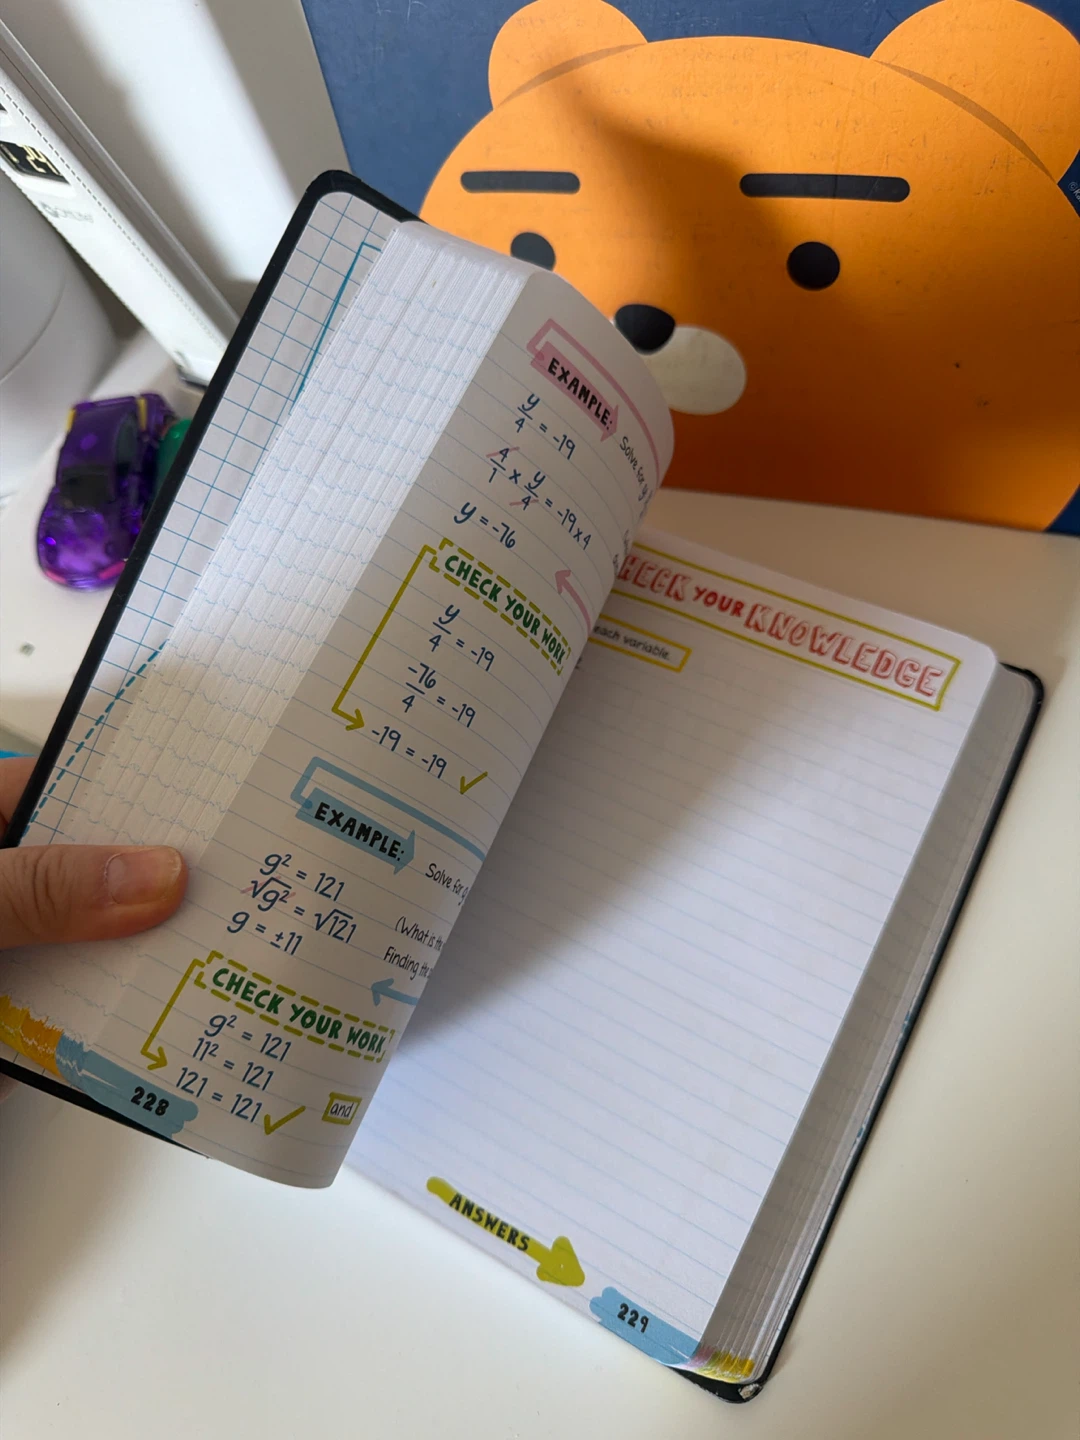 EXAMPLE:
Solve for y
y/4 = -19
4/1 x y/4 = -19 x 4
y = -76
CHECK YOUR WORK
y/4 = -19
-76/4 = -19
-19 = -19 ✓
EXAMPLE:
Solve for g
g² = 121
√g² = √121
(What is the
g = ±11
Finding the
CHECK YOUR WORK
g² = 121
11² = 121
121 = 121 ✓
and
228
HECK YOUR KNOWLEDGE
each variable.
ANSWERS
229